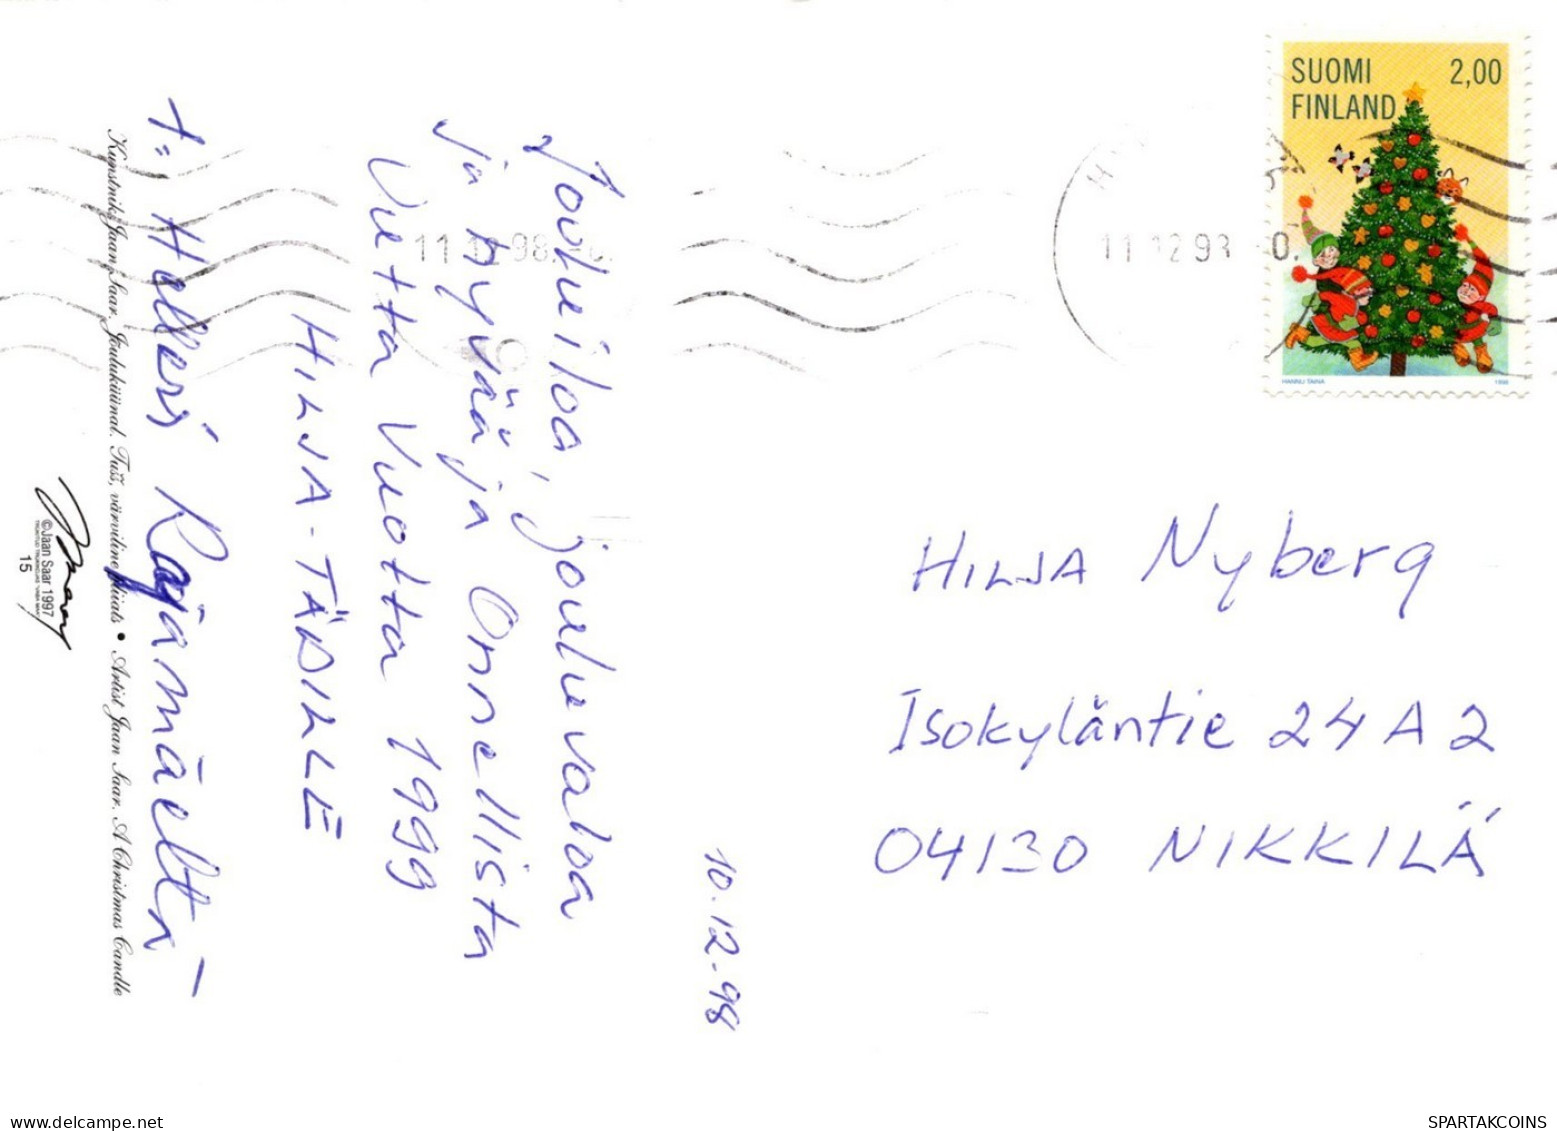 Jouluiloa, joulevaloa
ja hyvää ja Onnellista
Uutta Vuotta 1999
HILJA-TÄDILLE
t= Hellevi Rajamäeltä
10.12.-98
Kunstnik Jaan Saar. Jouluküünal. Tušš, värviline pliiats • Artist Jaan Saar. A Christmas Candle
©Jaan Saar 1997
15
SUOMI 2,00
FINLAND
HANNU TAINA 1998
11.12.98
11.12.98
HILJA Nyberg
Isokyläntie 24 A 2
04130 NIKKILÄ
SPARTAKCOINS
www.delcampe.net